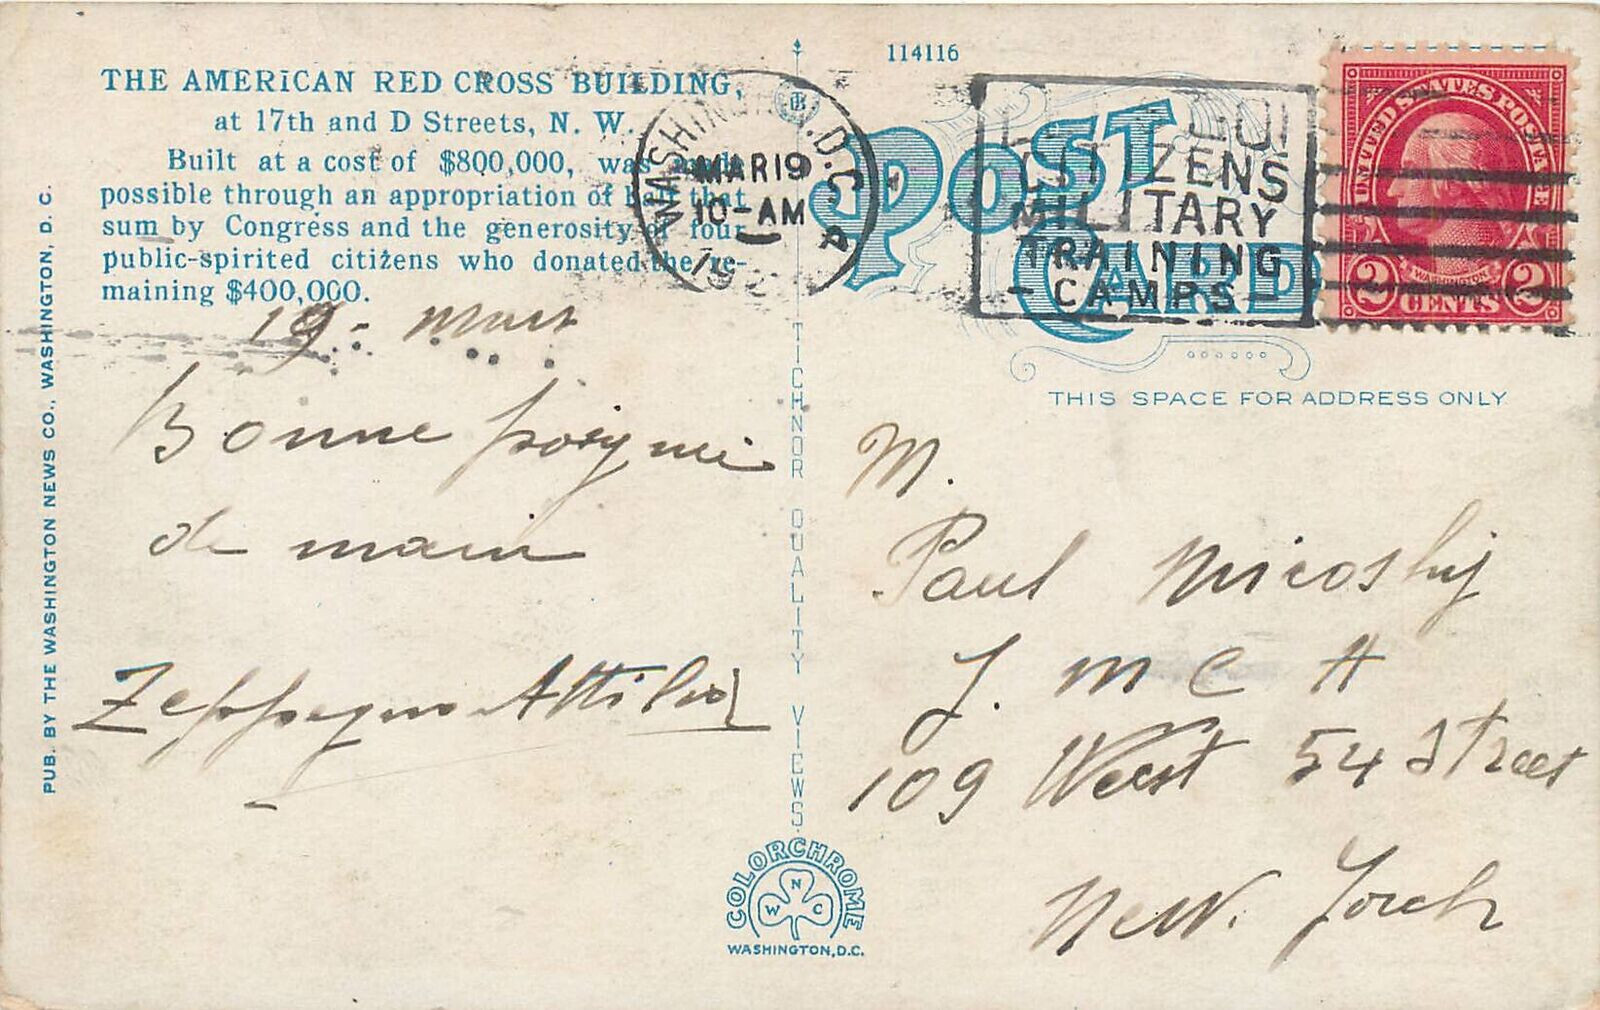 THE AMERICAN RED CROSS BUILDING,
at 17th and D Streets, N. W.
Built at a cost of $800,000, was made
possible through an appropriation of half that
sum by Congress and the generosity of four
public-spirited citizens who donated the re-
maining $400,000.
PUB. BY THE WASHINGTON NEWS CO., WASHINGTON, D. C.
19
Bonne poignée
de main
Attilio
TICHNOR QUALITY VIEWS
COLORCHROME
N
W C
WASHINGTON, D.C.
114116
POST
CARD
WASHINGTON, D.C.
MAR 19
10-AM
CITIZENS
MILITARY
TRAINING
CAMPS
UNITED STATES POSTAGE
WASHINGTON
2 CENTS 2
THIS SPACE FOR ADDRESS ONLY
M.
Paul
Y. M C A
109 West 54 Street
New. Yorch